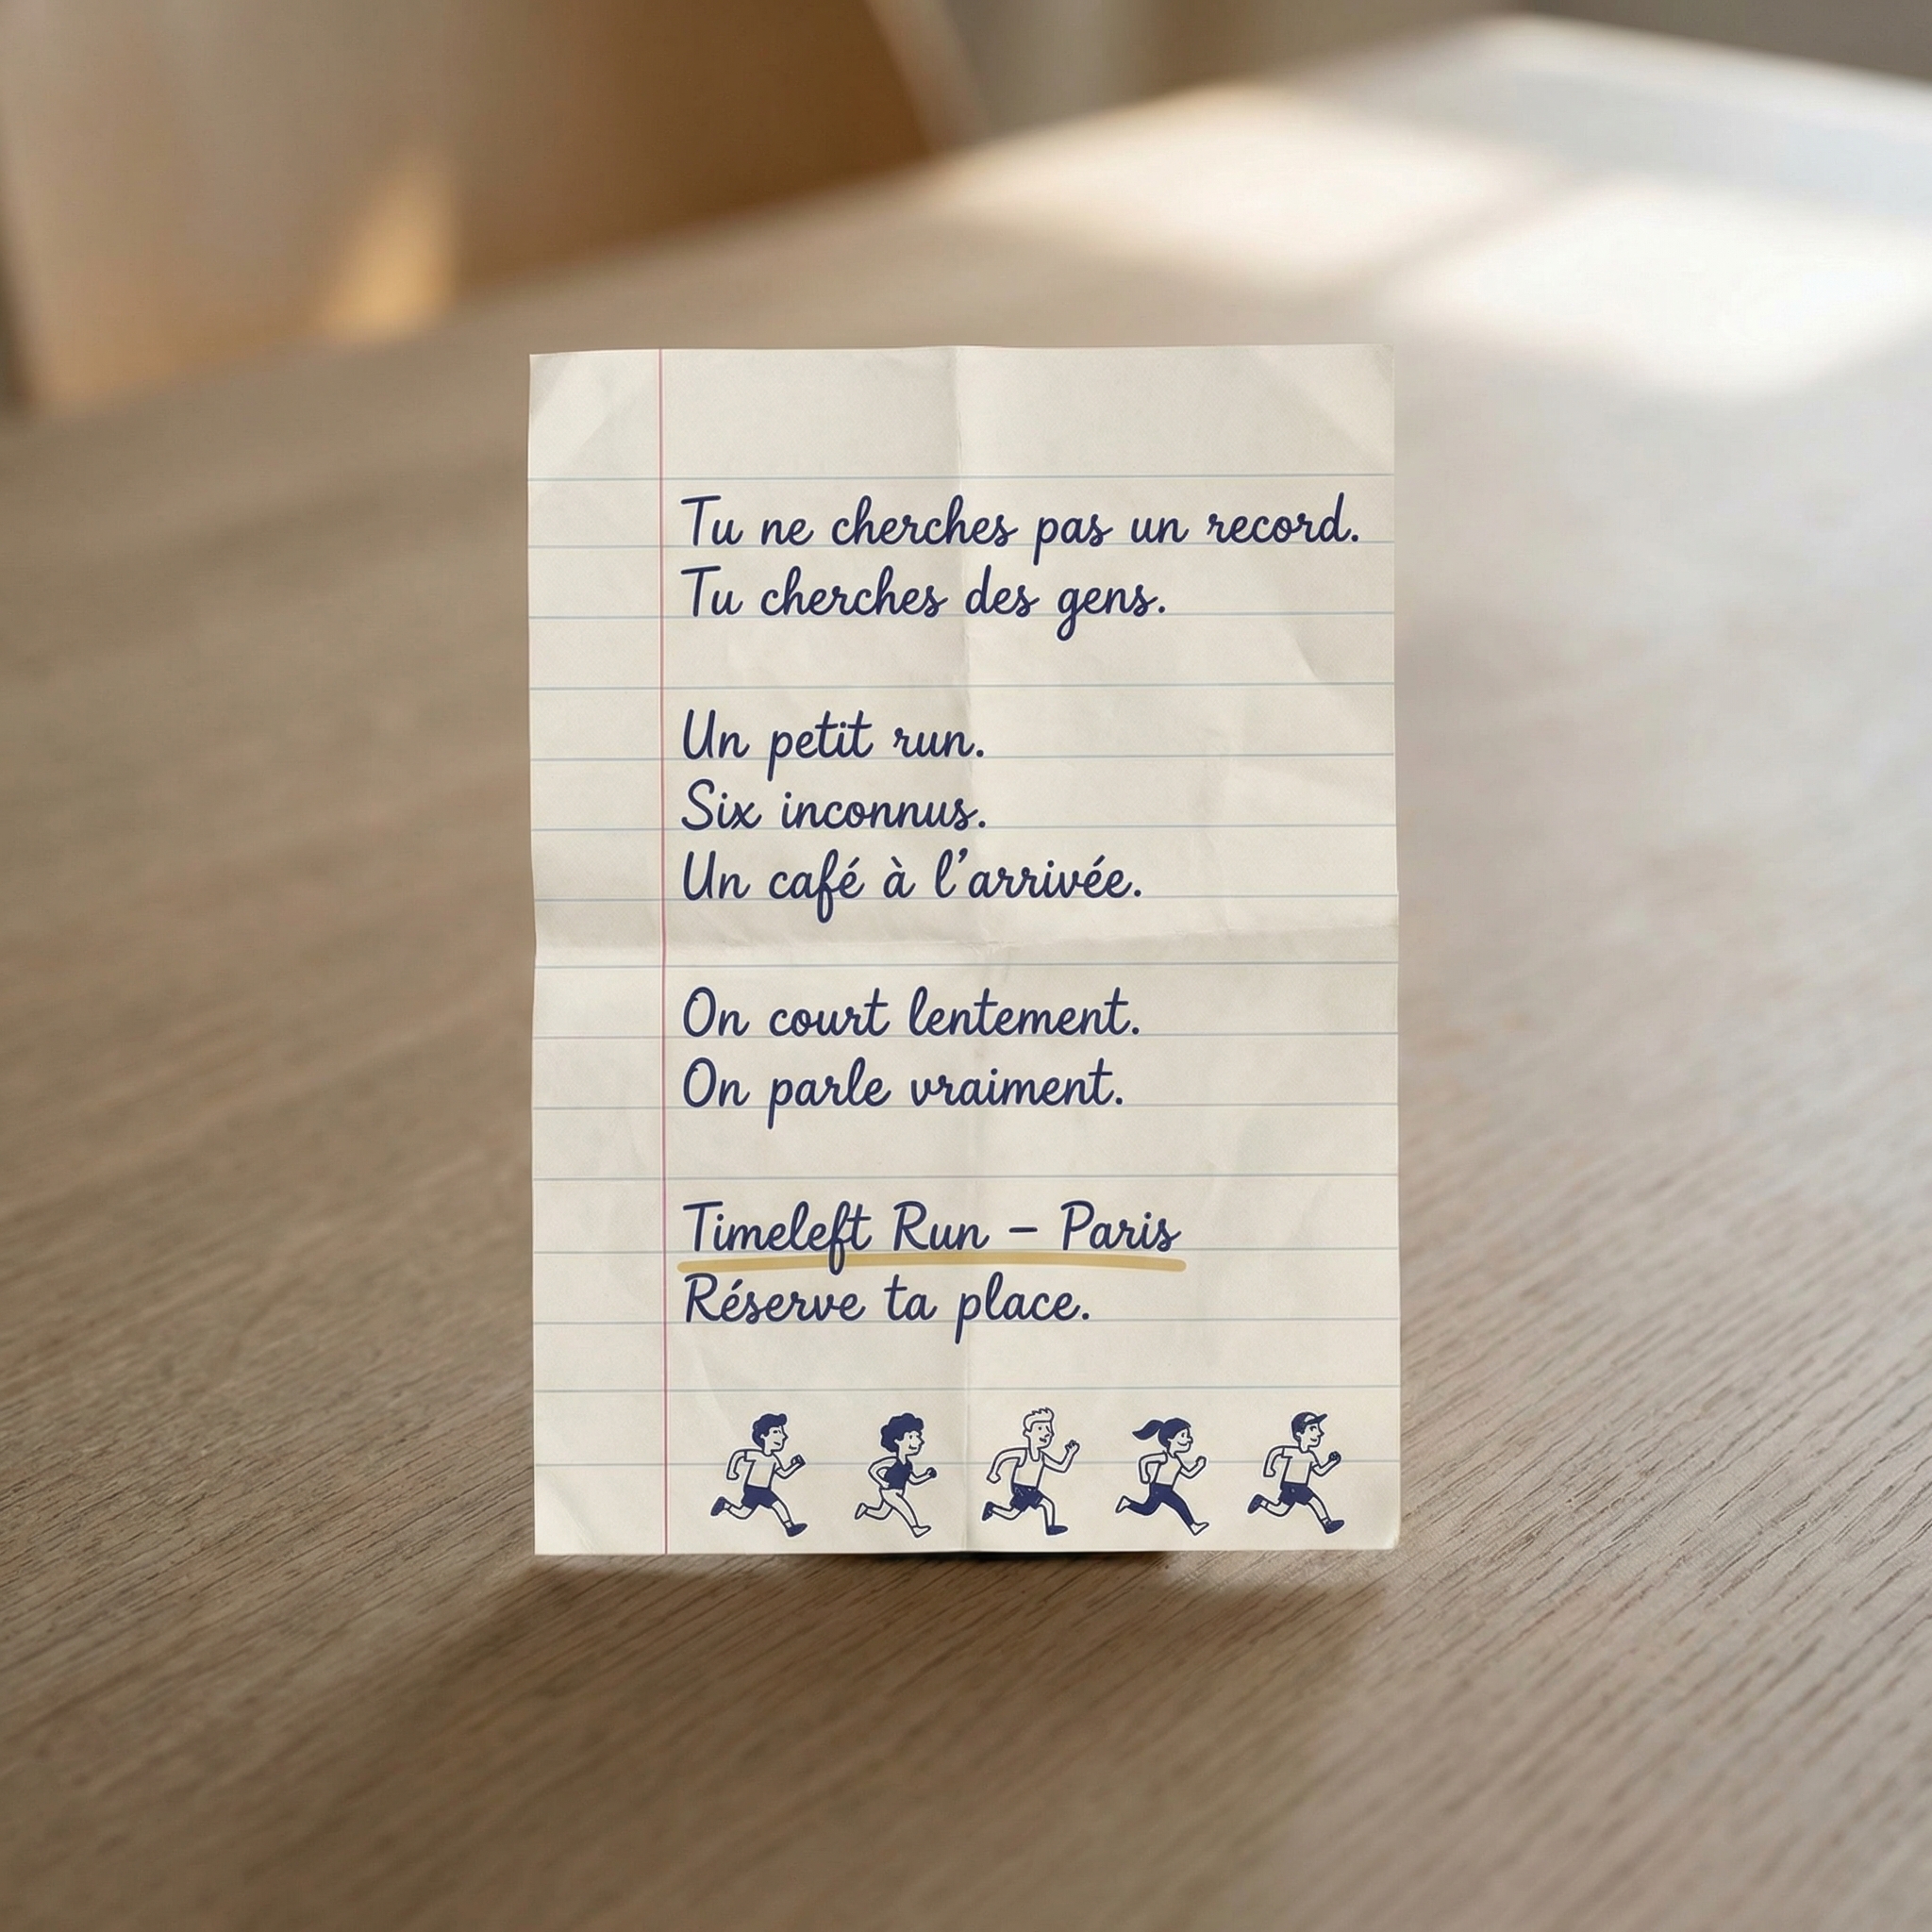 Tu ne cherches pas un record.
Tu cherches des gens.
Un petit run.
Six inconnus.
Un café à l’arrivée.
On court lentement.
On parle vraiment.
Timeleft Run – Paris
Réserve ta place.